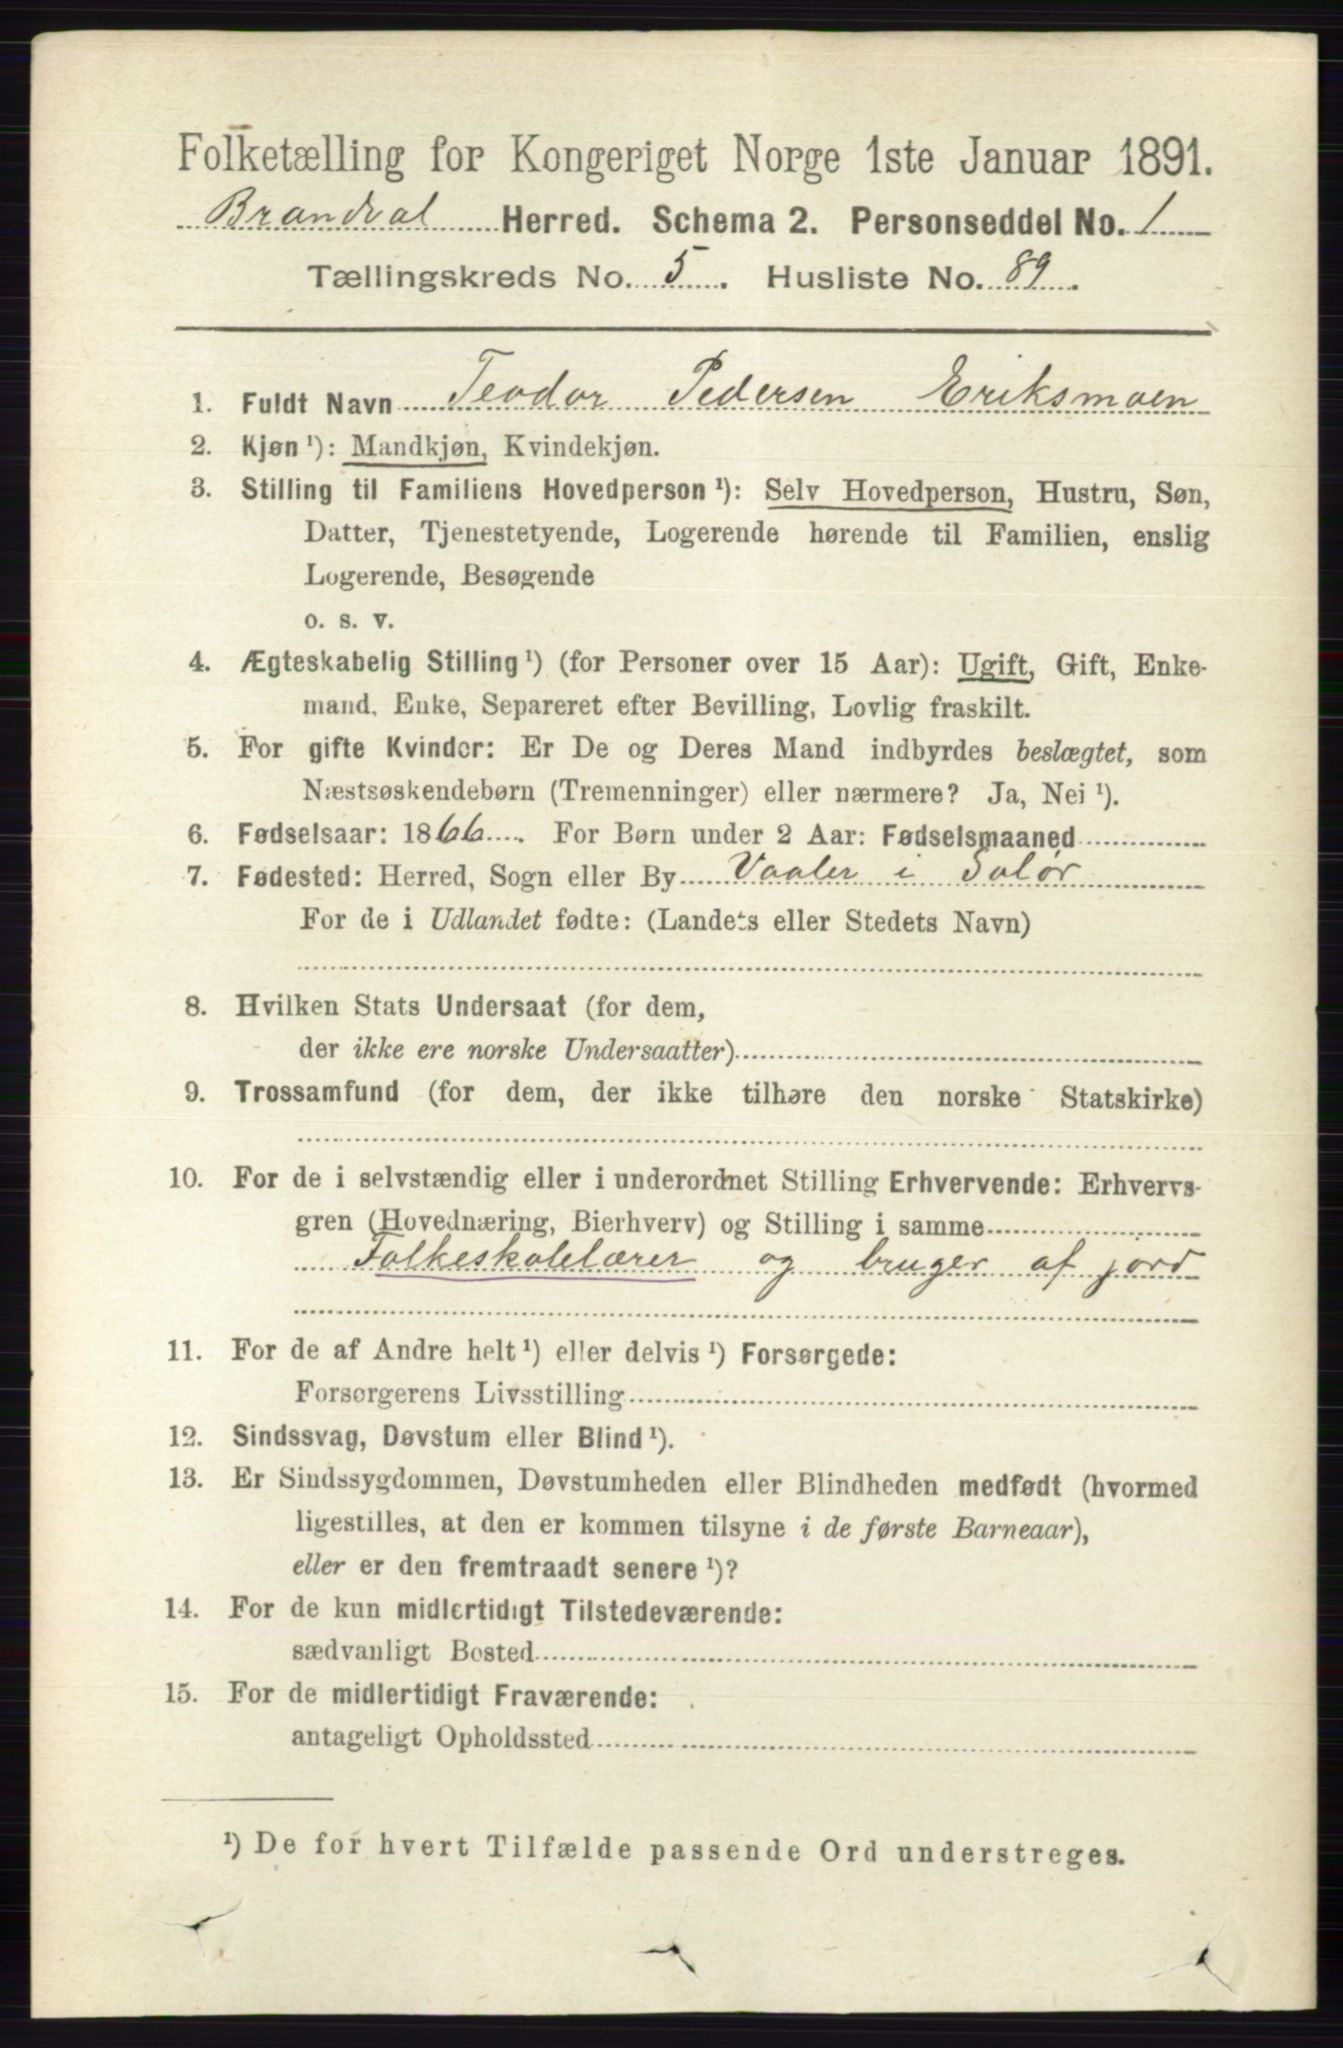 Folketælling for Kongeriget Norge 1ste Januar 1891.
Brandval Herred. Schema 2. Personseddel No. 1
Tællingskreds No. 5. Husliste No. 89.
1. Fuldt Navn Teodor Pedersen Eriksmoen
2. Kjøn¹): Mandkjøn, Kvindekjøn.
3. Stilling til Familiens Hovedperson¹): Selv Hovedperson, Hustru, Søn,
Datter, Tjenestetyende, Logerende hørende til Familien, enslig
Logerende, Besøgende
o. s. v.
4. Ægteskabelig Stilling¹) (for Personer over 15 Aar): Ugift, Gift, Enke-
mand, Enke, Separeret efter Bevilling, Lovlig fraskilt.
5. For gifte Kvinder: Er De og Deres Mand indbyrdes beslægtet, som
Næstsøskendebørn (Tremenninger) eller nærmere? Ja, Nei¹).
6. Fødselsaar: 1866. For Børn under 2 Aar: Fødselsmaaned
7. Fødested: Herred, Sogn eller By Vaaler i Solør
For de i Udlandet fødte: (Landets eller Stedets Navn)
8. Hvilken Stats Undersaat (for dem,
der ikke ere norske Undersaatter)
9. Trossamfund (for dem, der ikke tilhøre den norske Statskirke)
10. For de i selvstændig eller i underordnet Stilling Erhvervende: Erhvervs-
gren (Hovednæring, Bierhverv) og Stilling i samme
Folkeskolelærer og bruger af jord
11. For de af Andre helt¹) eller delvis¹) Forsørgede:
Forsørgerens Livsstilling
12. Sindssvag, Døvstum eller Blind¹).
13. Er Sindssygdommen, Døvstumheden eller Blindheden medfødt (hvormed
ligestilles, at den er kommen tilsyne i de første Barneaar),
eller er den fremtraadt senere¹)?
14. For de kun midlertidigt Tilstedeværende:
sædvanligt Bosted
15. For de midlertidigt Fraværende:
antageligt Opholdssted
¹) De for hvert Tilfælde passende Ord understreges.